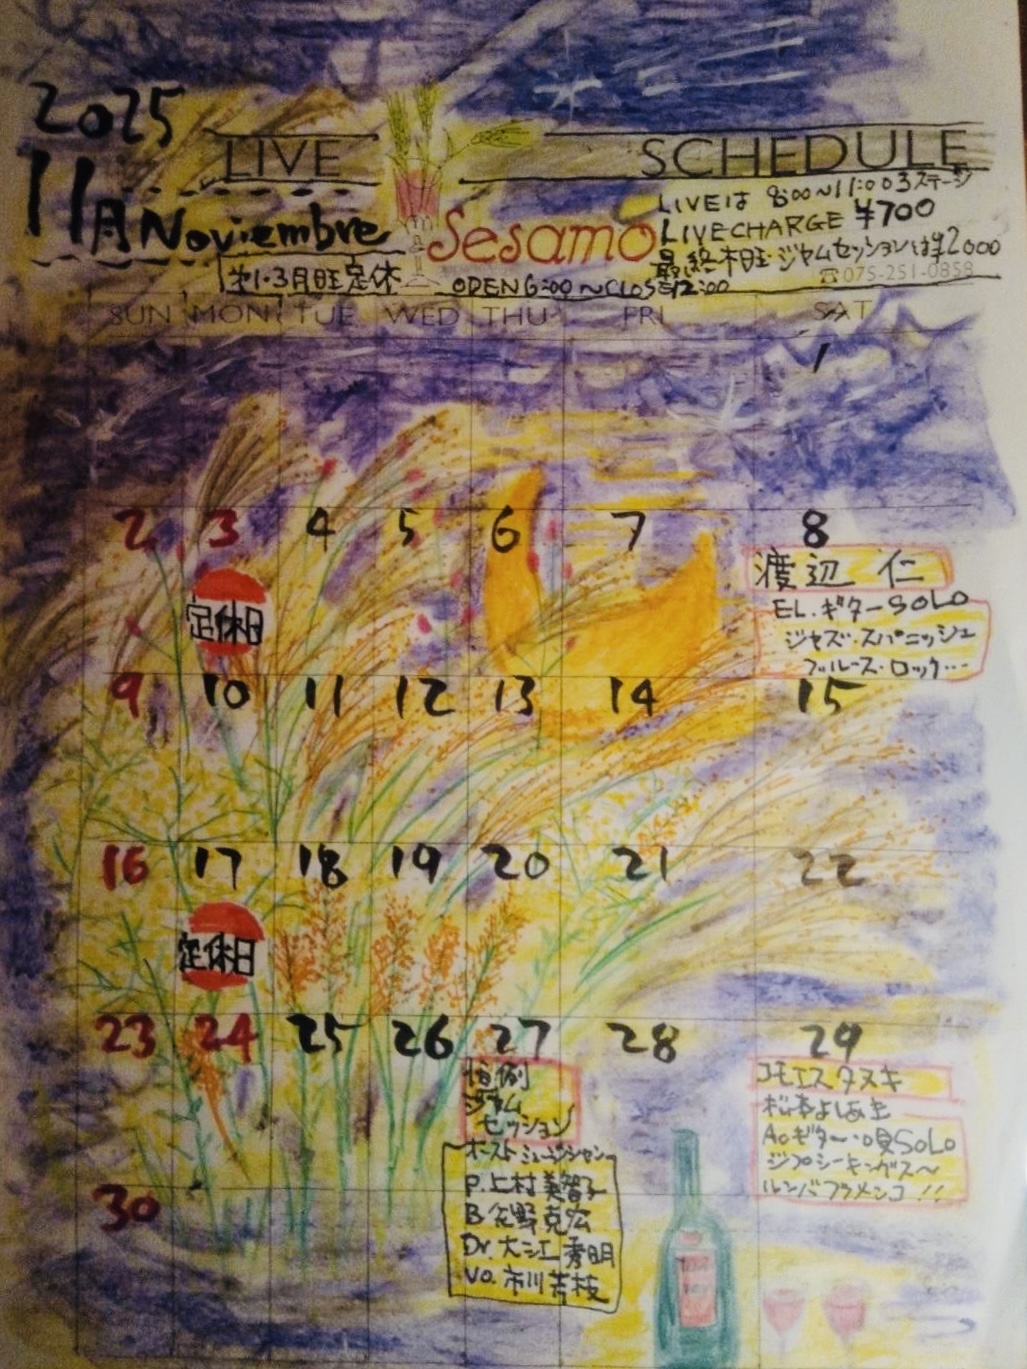 2025
LIVE SCHEDULE
11月 Noviembre
Sesamo
LIVEは 8:00～11:00 3ステージ
LIVECHARGE ¥700
最終木旺・ジャムセッションは¥2000
☎075-251-0858
第1・3月旺定休
OPEN6:00～CLOSE12:00
SUN MON TUE WED THU FRI SAT
1
2 3 4 5 6 7 8
定休日
渡辺 仁
EL.ギターSOLO
ジャズ・スパニッシュ
ブルース・ロック…
9 10 11 12 13 14 15
16 17 18 19 20 21 22
定休日
23 24 25 26 27 28 29
恒例
ジャム
セッション
ホーストミュージシャン
P.上村美智子
B 佐野克宏
Dr.大江秀明
VO.市川芳枝
コモエスタヌキ
松本よしあき
Acギター・唄SOLO
ジプシーキングス～
ルンバフラメンコ!!
30